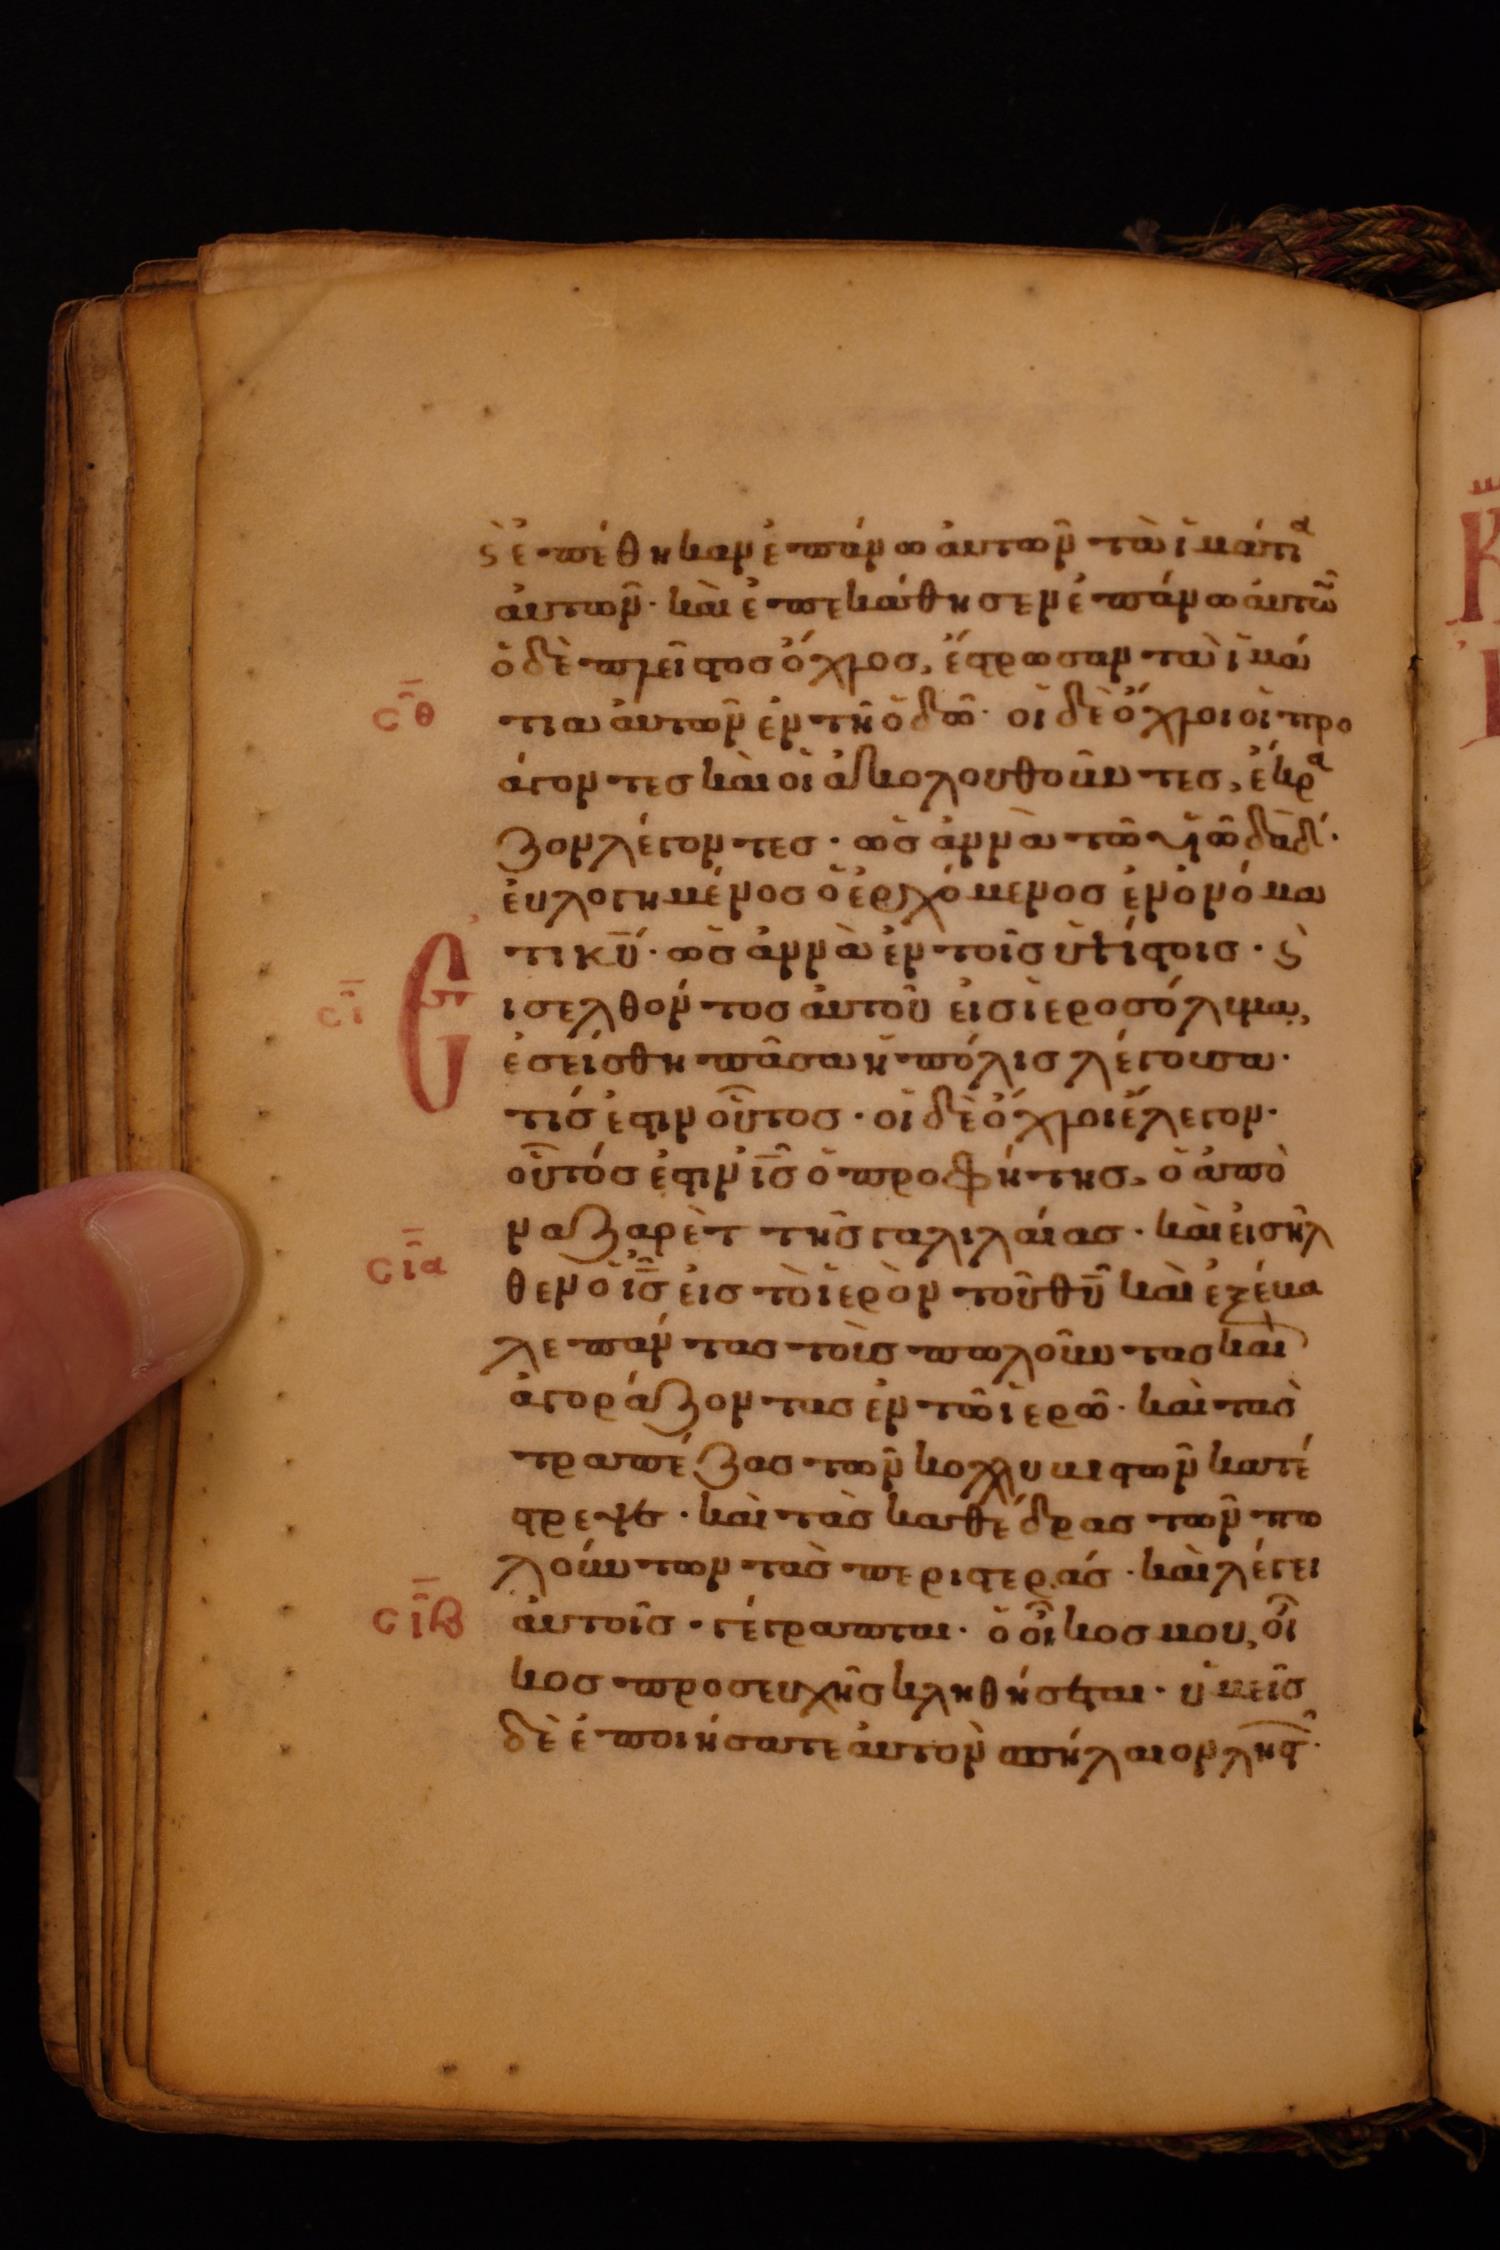 ϛ ἐπέθηκαν ἐπάνω ἀυτῶν τὰ ἱμάτια
ἀυτῶν· κὰι ἐπεκάθησεν ἐπάνω ἀυτῶ
ὁ δὲ πλεῖστοσ ὄχλοσ, ἔστρωσαν τὰ ἱμά
σ̅θ τια ἀυτῶν ἐν τῆ ὁδῶ· οἱ δὲ ὄχλοι οἱ προ
άγοντεσ κὰι οἱ ἀκολουθοῦντεσ, ἔκρα
ζον λέγοντεσ· ὡσ ἀννὰ τῶ υἱῶ δαδ·
ἐυλογημένοσ ὁ ἐρχόμενοσ ἐν ὀνόμα
τι κ̅υ̅· ὡσ ἀννὰ ἐν τοῖσ ὑψίστοισ· ϛ
σ̅ι Ἐισελθόντοσ ἀυτοῦ ἐισ ἱεροσόλυμα,
ἐσείσθη πᾶσα ἡ πόλισ λέγουσα·
τίσ ἐστιν οὗτοσ· οἱ δὲ ὄχλοι ἔλεγον·
οὗτόσ ἐστιν ι̅σ̅ ὁ προφήτησ, ὁ ἀπὸ
σ̅ι̅α ναζαρὲτ τῆσ γαλιλάιασ· κὰι ἐισῆλ
θεν ὁ ι̅σ̅ ἐισ τὸ ἱερὸν τοῦ θ̅υ̅ κὰι ἐξέβα
λε πάντασ τοὺσ πωλοῦντασ κὰι
ἀγοράζοντασ ἐν τῶ ἱερῶ· κὰι τὰσ
τραπέζασ τῶν κολλυβιστῶν κατέ
στρεψε· κὰι τὰσ καθέδρασ τῶν πω
λούντων τὰσ περιστεράσ· κὰι λέγει
σ̅ι̅β ἀυτοῖσ· γέγραπται· ὁ οἶκοσ μου, οἶ
κοσ προσευχῆσ κληθήσεται· ὑμεῖσ
δὲ ἐποιήσατε ἀυτὸν σπήλαιον λῃστ·